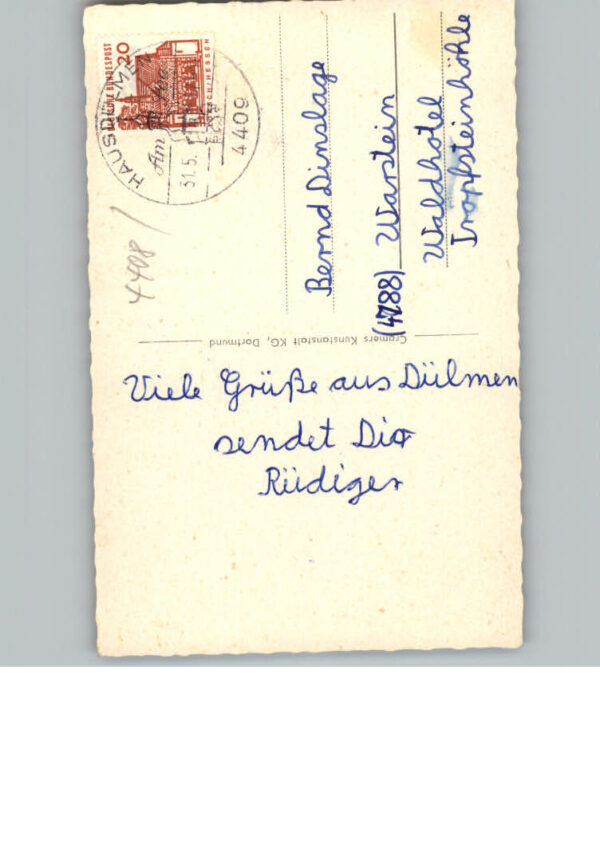 Viele Grüße aus Dülmen
sendet Dir
Rüdiger
Bernd Dinslage
(4788) Warstein
Waldhotel
Tropfsteinhöhle
Cramers Kunstanstalt KG, Dortmund
4408/
20
DEUTSCHE BUNDESPOST
LORSCH/HESSEN
HAUSDÜLMEN
Am
31.5.
4409